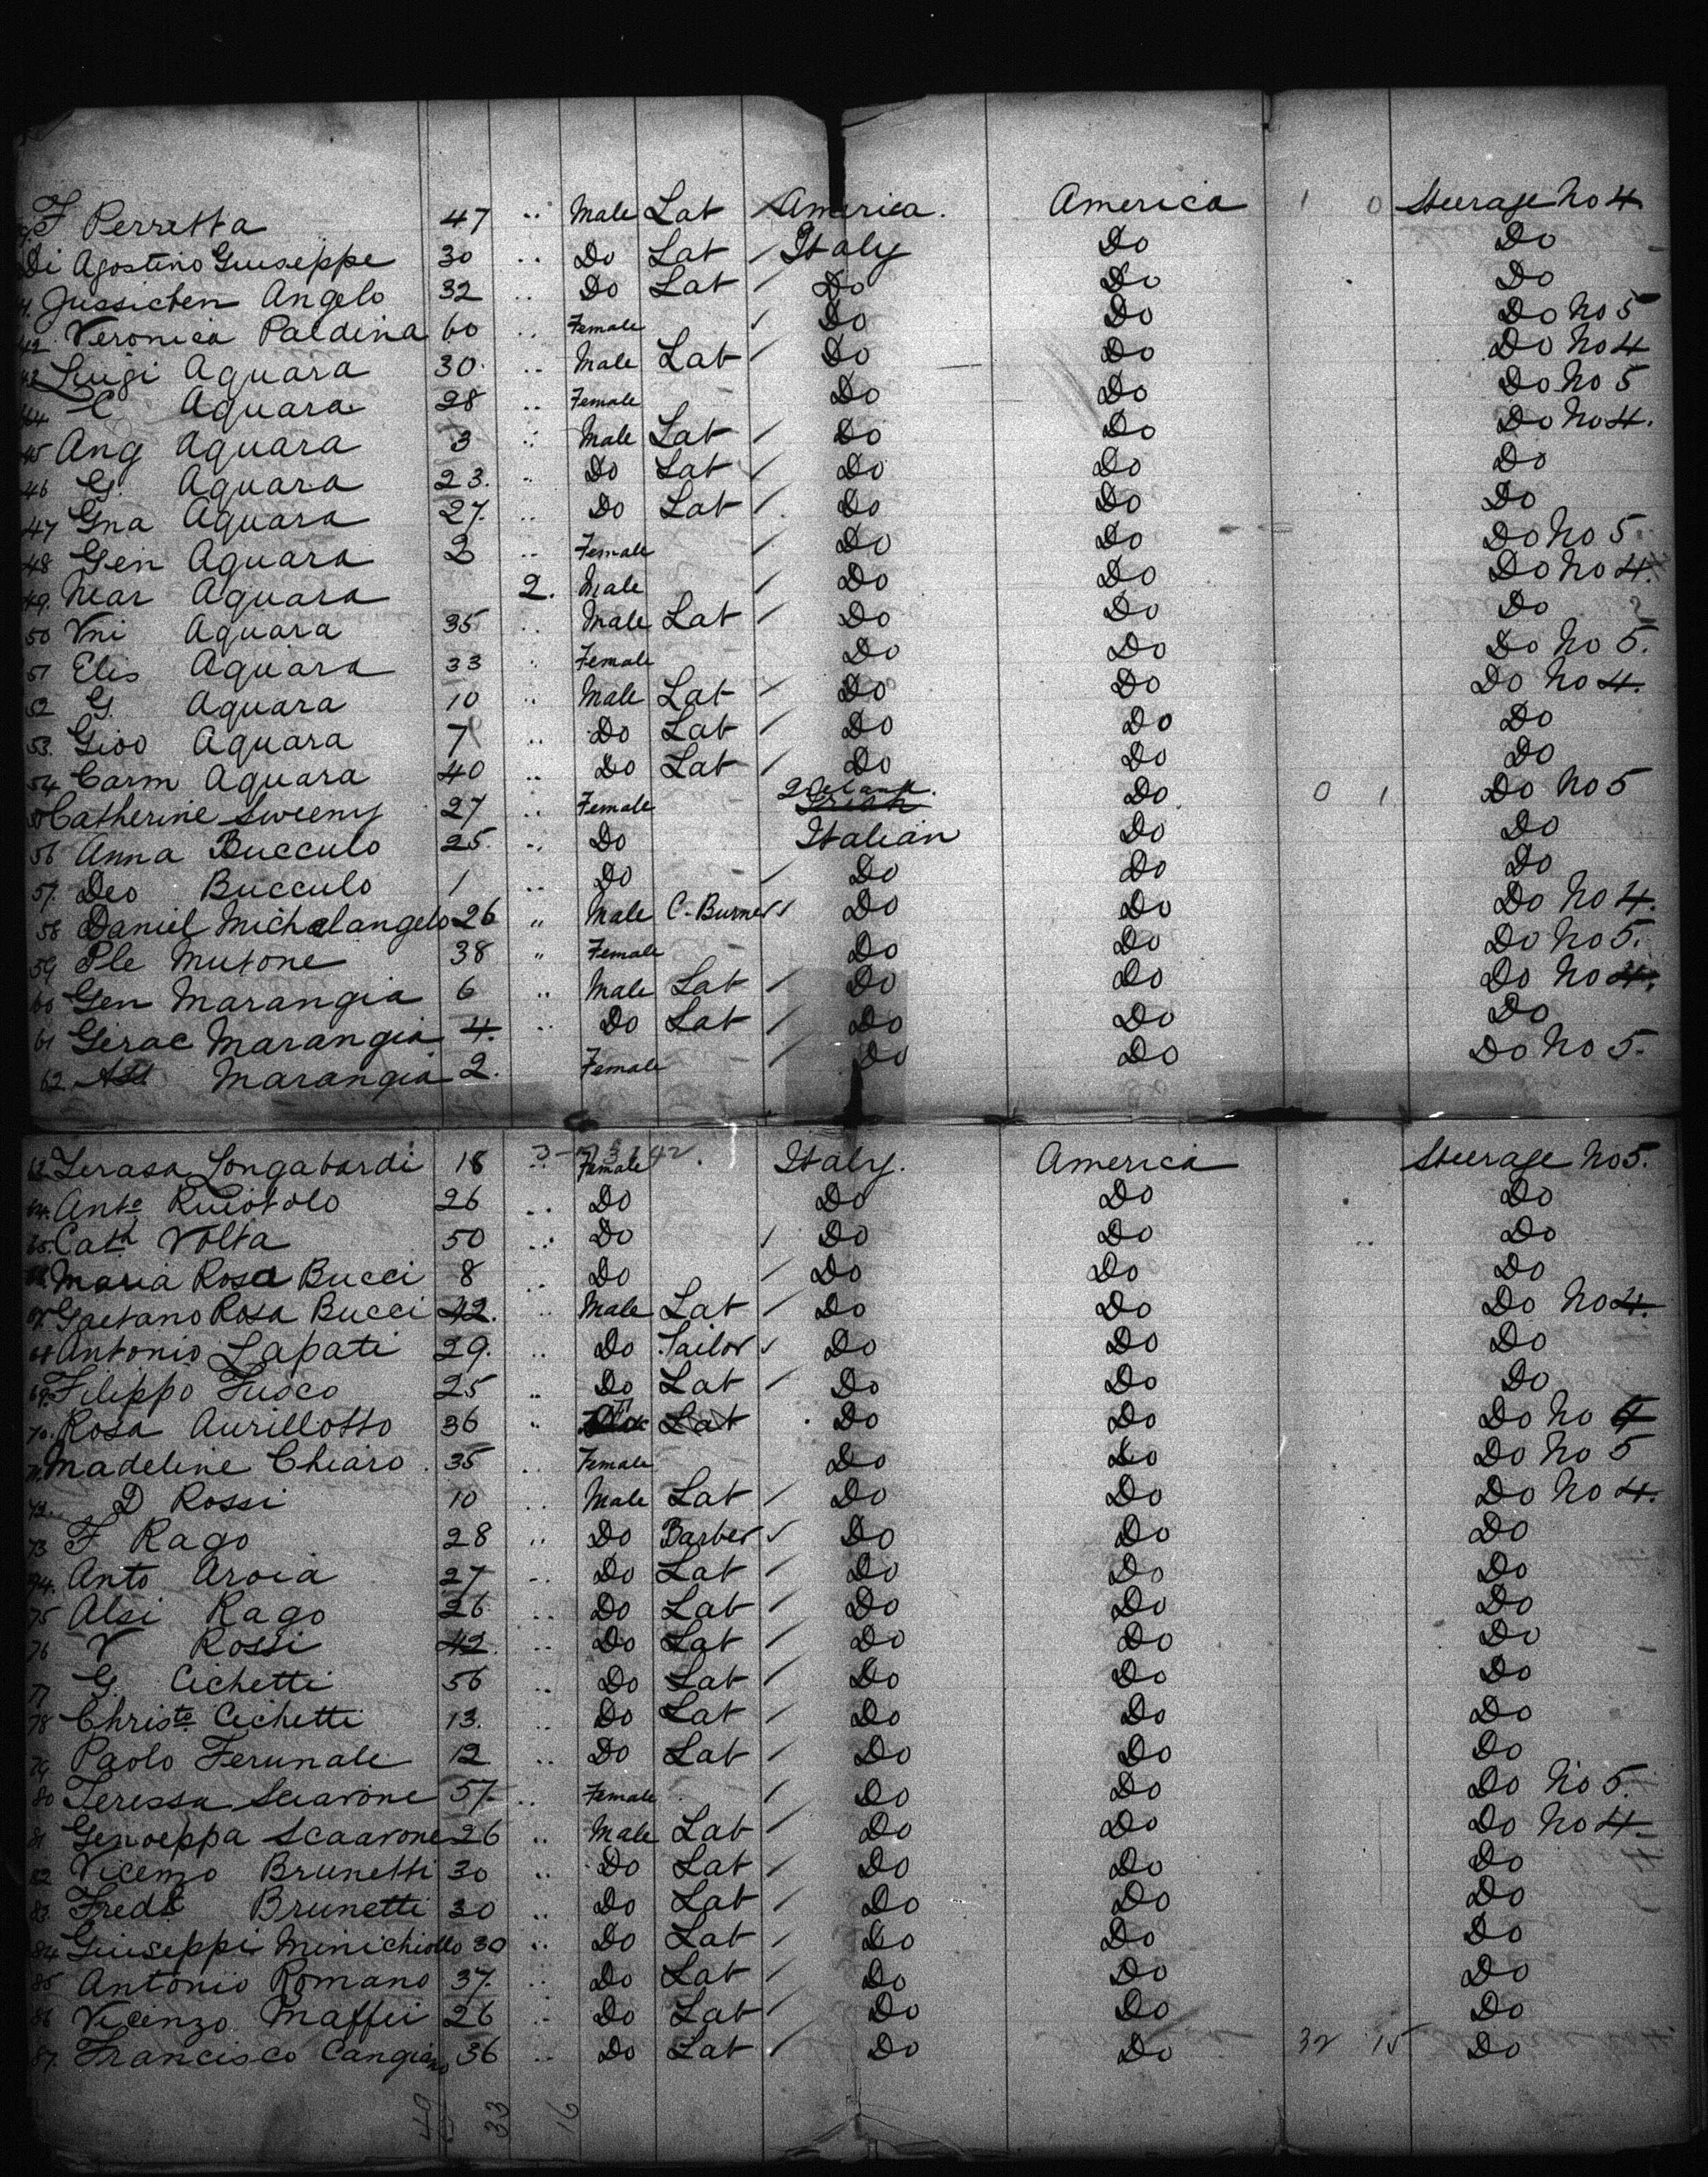 F Perretta 47 .. Male Lat / America. America 1 0 Steerage No 4
Di Agostino Giuseppe 30 .. Do Lat / Italy Do Do
Angelo 32 .. Do Lat / Do Do Do
42 Veronica Paldina 60 .. Female / Do Do Do No 5
43 Luigi Aquara 30. .. Male Lat / Do Do Do No 4
44 C Aquara 28 .. Female Do Do Do No 5
45 Ang Aquara 3 .. Male Lat / Do Do Do No 4.
46 G. Aquara 23. .. Do Lat / Do Do Do
47 Gna Aquara 27. .. Do Lat / Do Do Do
48 Gen Aquara 2 .. Female / Do Do Do No 5.
49. Near Aquara 2. Male / Do Do Do No 4.
50 Vni Aquara 35 .. Male Lat / Do Do Do
51 Elis Aquara 33 .. Female Do Do Do No 5.
52 G. Aquara 10 .. Male Lat / Do Do Do No 4.
53. Gioo Aquara 7 .. Do Lat / Do Do Do
54 Carm Aquara 40 .. Do Lat / Do Do Do
55 Catherine Sweeny 27 .. Female Irish Do 0 1 Do No 5
56 Anna Bucculo 25. .. Do Italian Do Do
57. Deo Bucculo 1 .. Do / Do Do Do
58 Daniel Michalangelo 26 " Male C. Burner / Do Do Do No 4.
59 Ple Mutone 38 " Female Do Do Do No 5.
60 Gen Marangia 6 .. Male Lat / Do Do Do No 4.
61 Gerac Marangia 4. .. Do Lat / Do Do Do
62. Marangia 2. Female / Do Do Do No 5.
63. Terasa Longabardi 18 .. Female Italy. America Steerage No 5.
64. Anto Ruiotolo 26 .. Do Do Do Do
65. Cath Volta 50 .. Do / Do Do Do
Maria Rosa Bucci 8 .. Do / Do Do Do
67. Gaetano Rosa Bucci 42. .. Male Lat / Do Do Do No 4.
68 Antonio Lapati 29. .. Do Tailor / Do Do Do
69. Filippo Fusco 25 .. Do Lat / Do Do Do
70. Rosa Aurillotto 36 " Lat Do Do Do No
71. Madeline Chiaro. 35 .. Female Do Do Do No 5
72. D Rossi 10 .. Male Lat / Do Do Do No 4.
73 F Rago 28 .. Do Barber / Do Do Do
74. Anto Aroia 27 .. Do Lat / Do Do Do
75 Alsi Rago 26 .. Do Lat / Do Do Do
76 V Rossi 42. .. Do Lat / Do Do Do
77 G. Cichetti 56 .. Do Lat / Do Do Do
78 Christo Cichetti 13. .. Do Lat / Do Do Do
79. Paolo Ferunale 12 .. Do Lat / Do Do Do
80 Teressa Sciarone 57. .. Female / Do Do Do No 5.
81 Genoeppa Scaarone 26 .. Male Lat / Do Do Do No 4.
82 Vicenzo Brunetti 30 .. Do Lat / Do Do Do
83. Fredk Brunetti 30 .. Do Lat / Do Do Do
84 Giuseppi Minichiollo 30 .. Do Lat / Do Do Do
85 Antonio Romano 37. .. Do Lat / Do Do Do
86 Vicenzo Maffei 26 .. Do Lat / Do Do Do
87. Francisco Cangiano 36 .. Do Lat / Do Do 32 15 Do
49 33 16